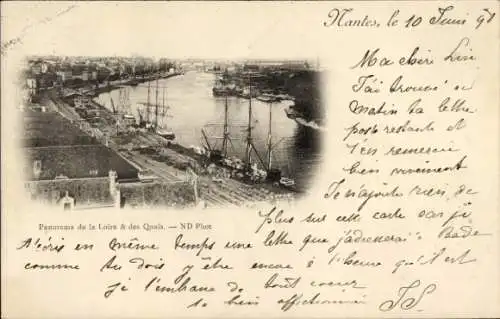 Nantes, le 10 Juin 98
Ma chère Lise
J'ai trouvé ce
matin ta lettre
poste restante et
t'en remercie
bien vivement.
Je n'ajoute rien de
plus sur cette carte car j'
Panorama de la Loire & des Quais. — ND Phot
écris en même temps une
lettre que j'adresserai
comme tu dois y être encore à l'heure qu'il est
je t'embrasse de tout cœur
bien affectueusement
JS